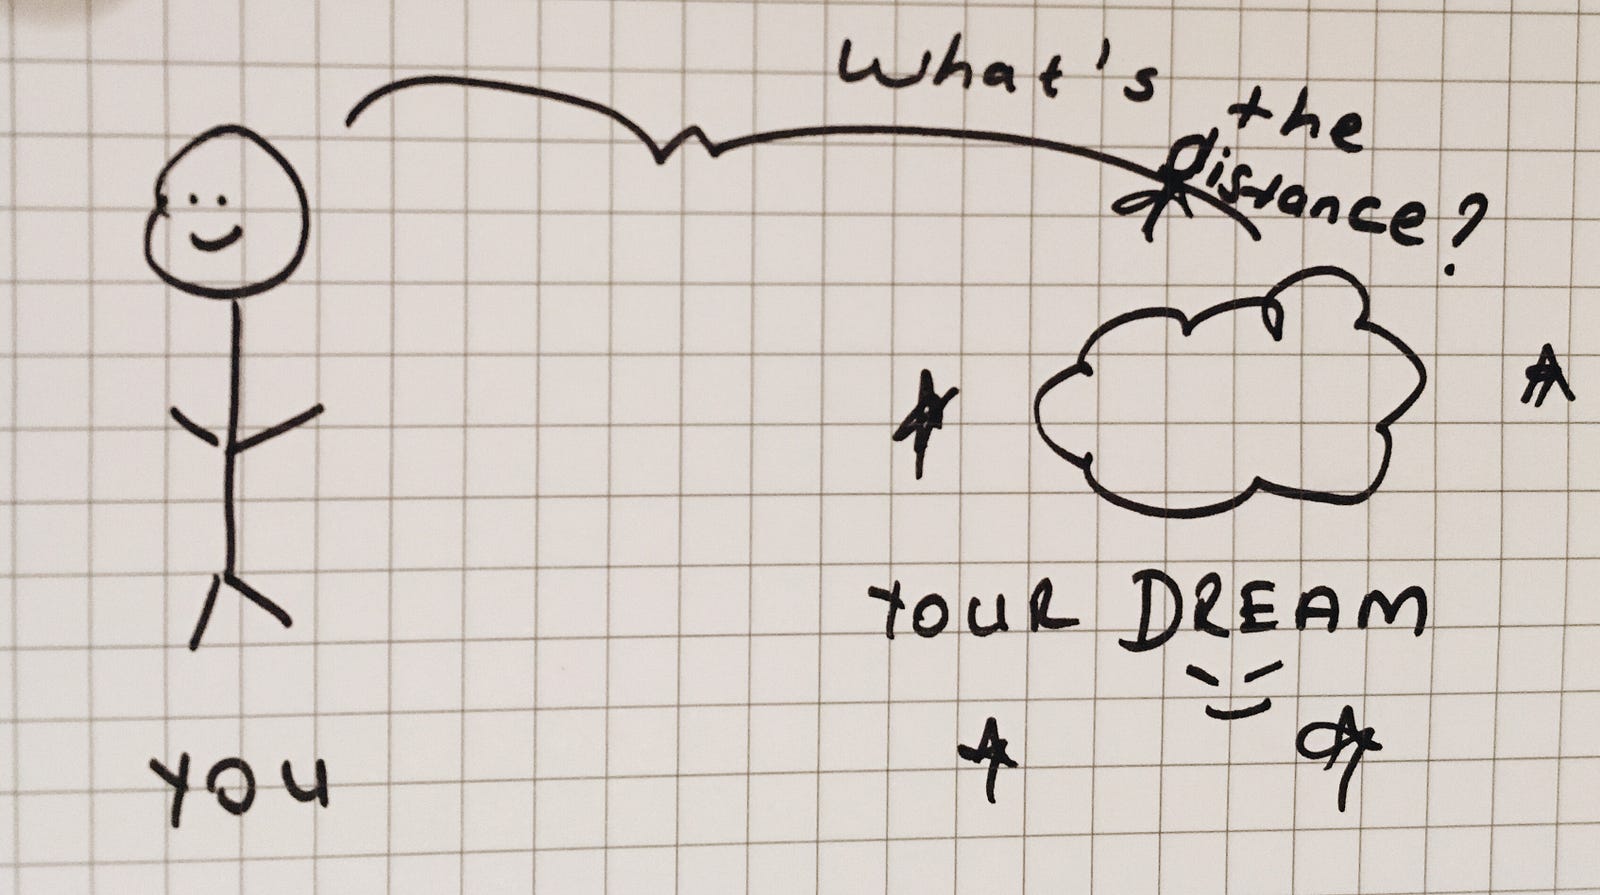 What's the
distance?
YOUR DREAM
YOU